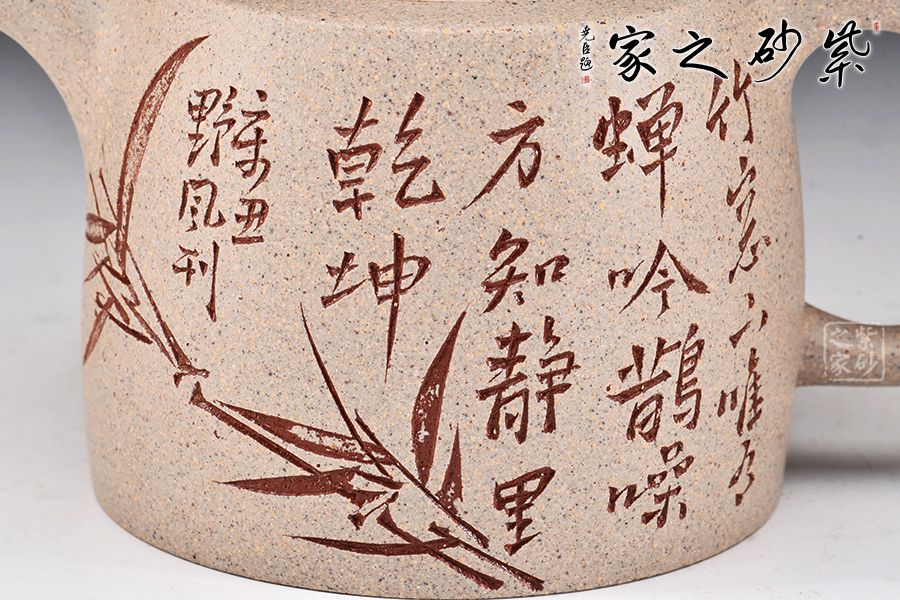 紫砂之家
竹窗下唯有
蝉吟鹊噪
方知静里
乾坤
辛丑
野风刊
紫砂
之家